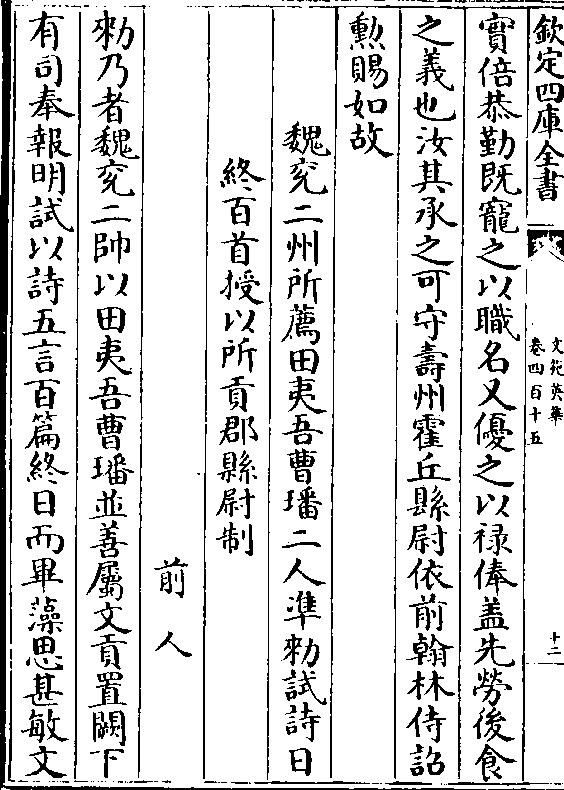 欽定四庫全書
文苑英華
卷四百十五
十二
實倍恭勤既寵之以職名又優之以禄俸盖先勞後食
之義也汝其承之可守壽州霍丘縣尉依前翰林侍詔
勲賜如故
魏兖二州所薦田夷吾曹璠二人凖勑試詩日
終百首授以所貢郡縣尉制
前人
勑乃者魏兖二帥以田夷吾曹璠並善屬文貢置闕下
有司奉報明試以詩五言百篇終日而畢藻思甚敏文